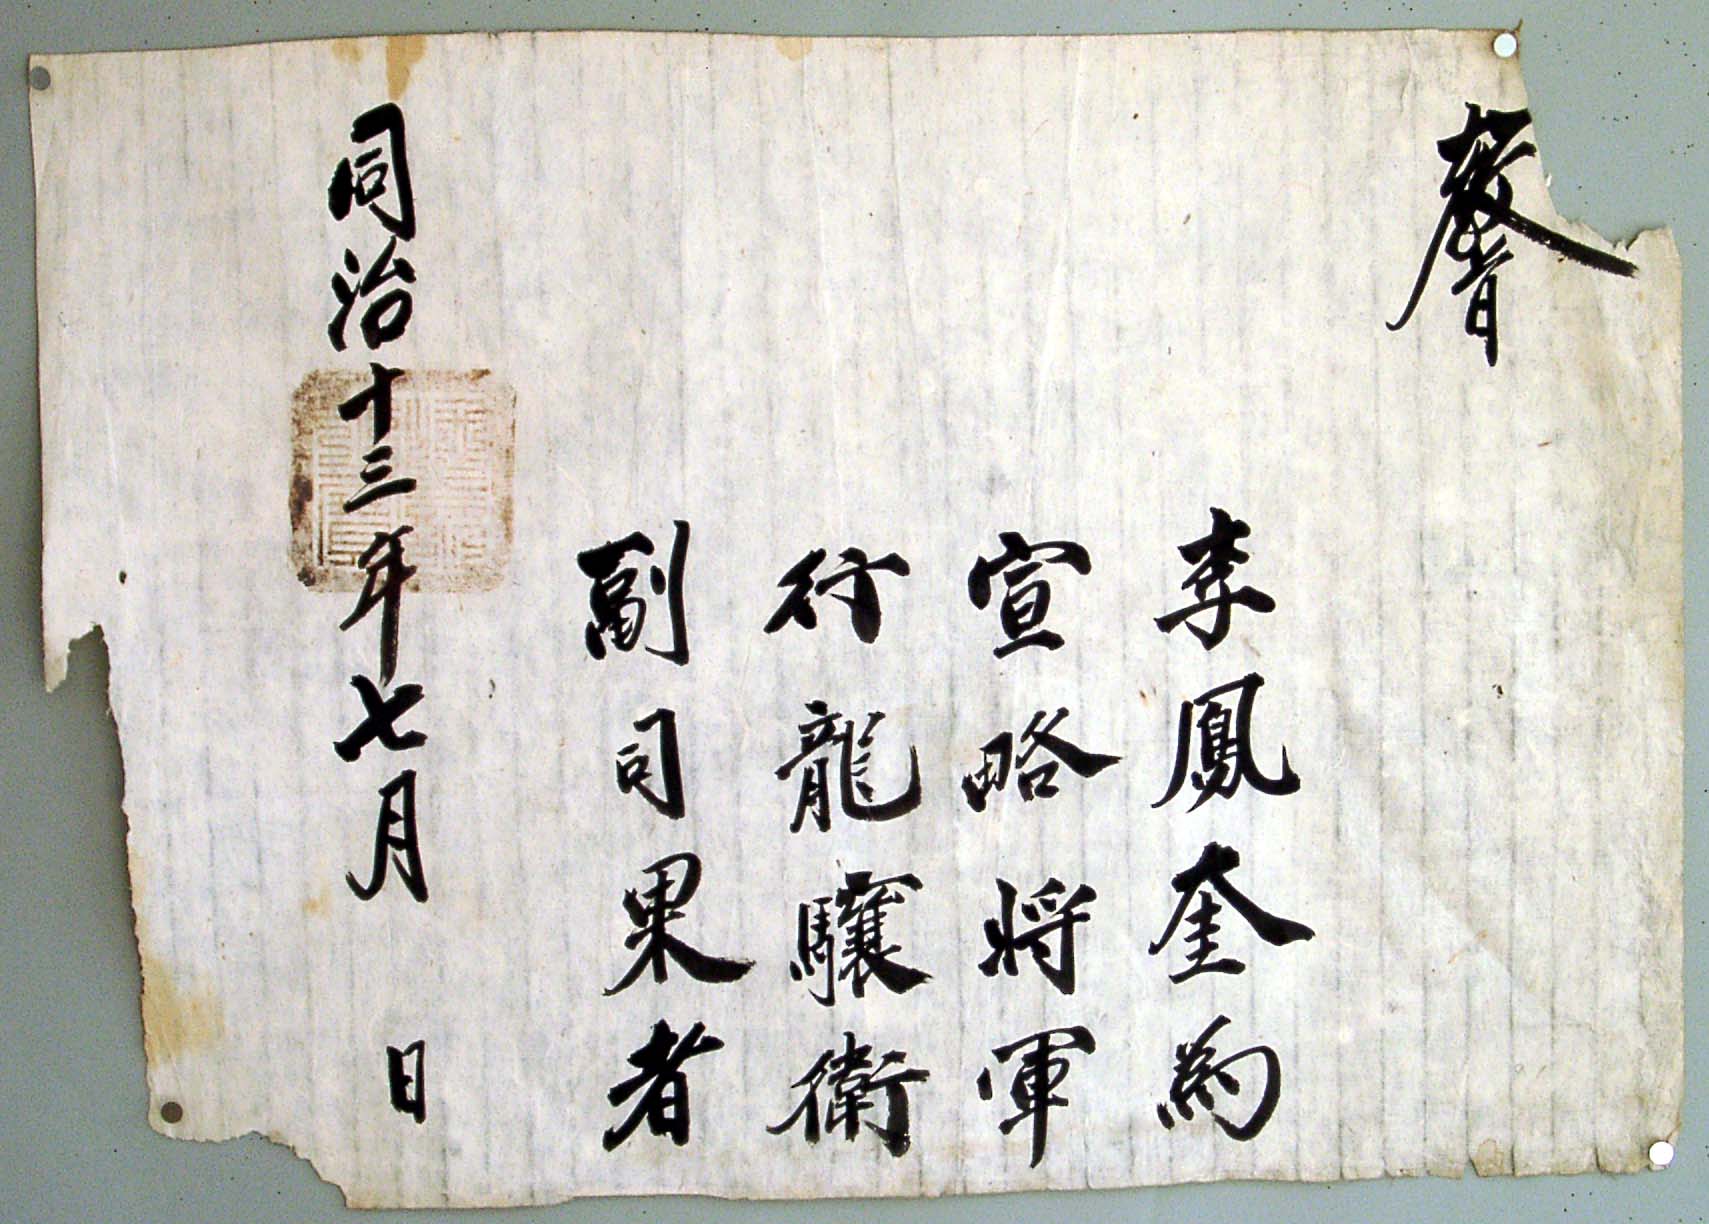 敎旨
李鳳奎為
宣略將軍
行龍驤衛
副司果者
同治十三年七月 日